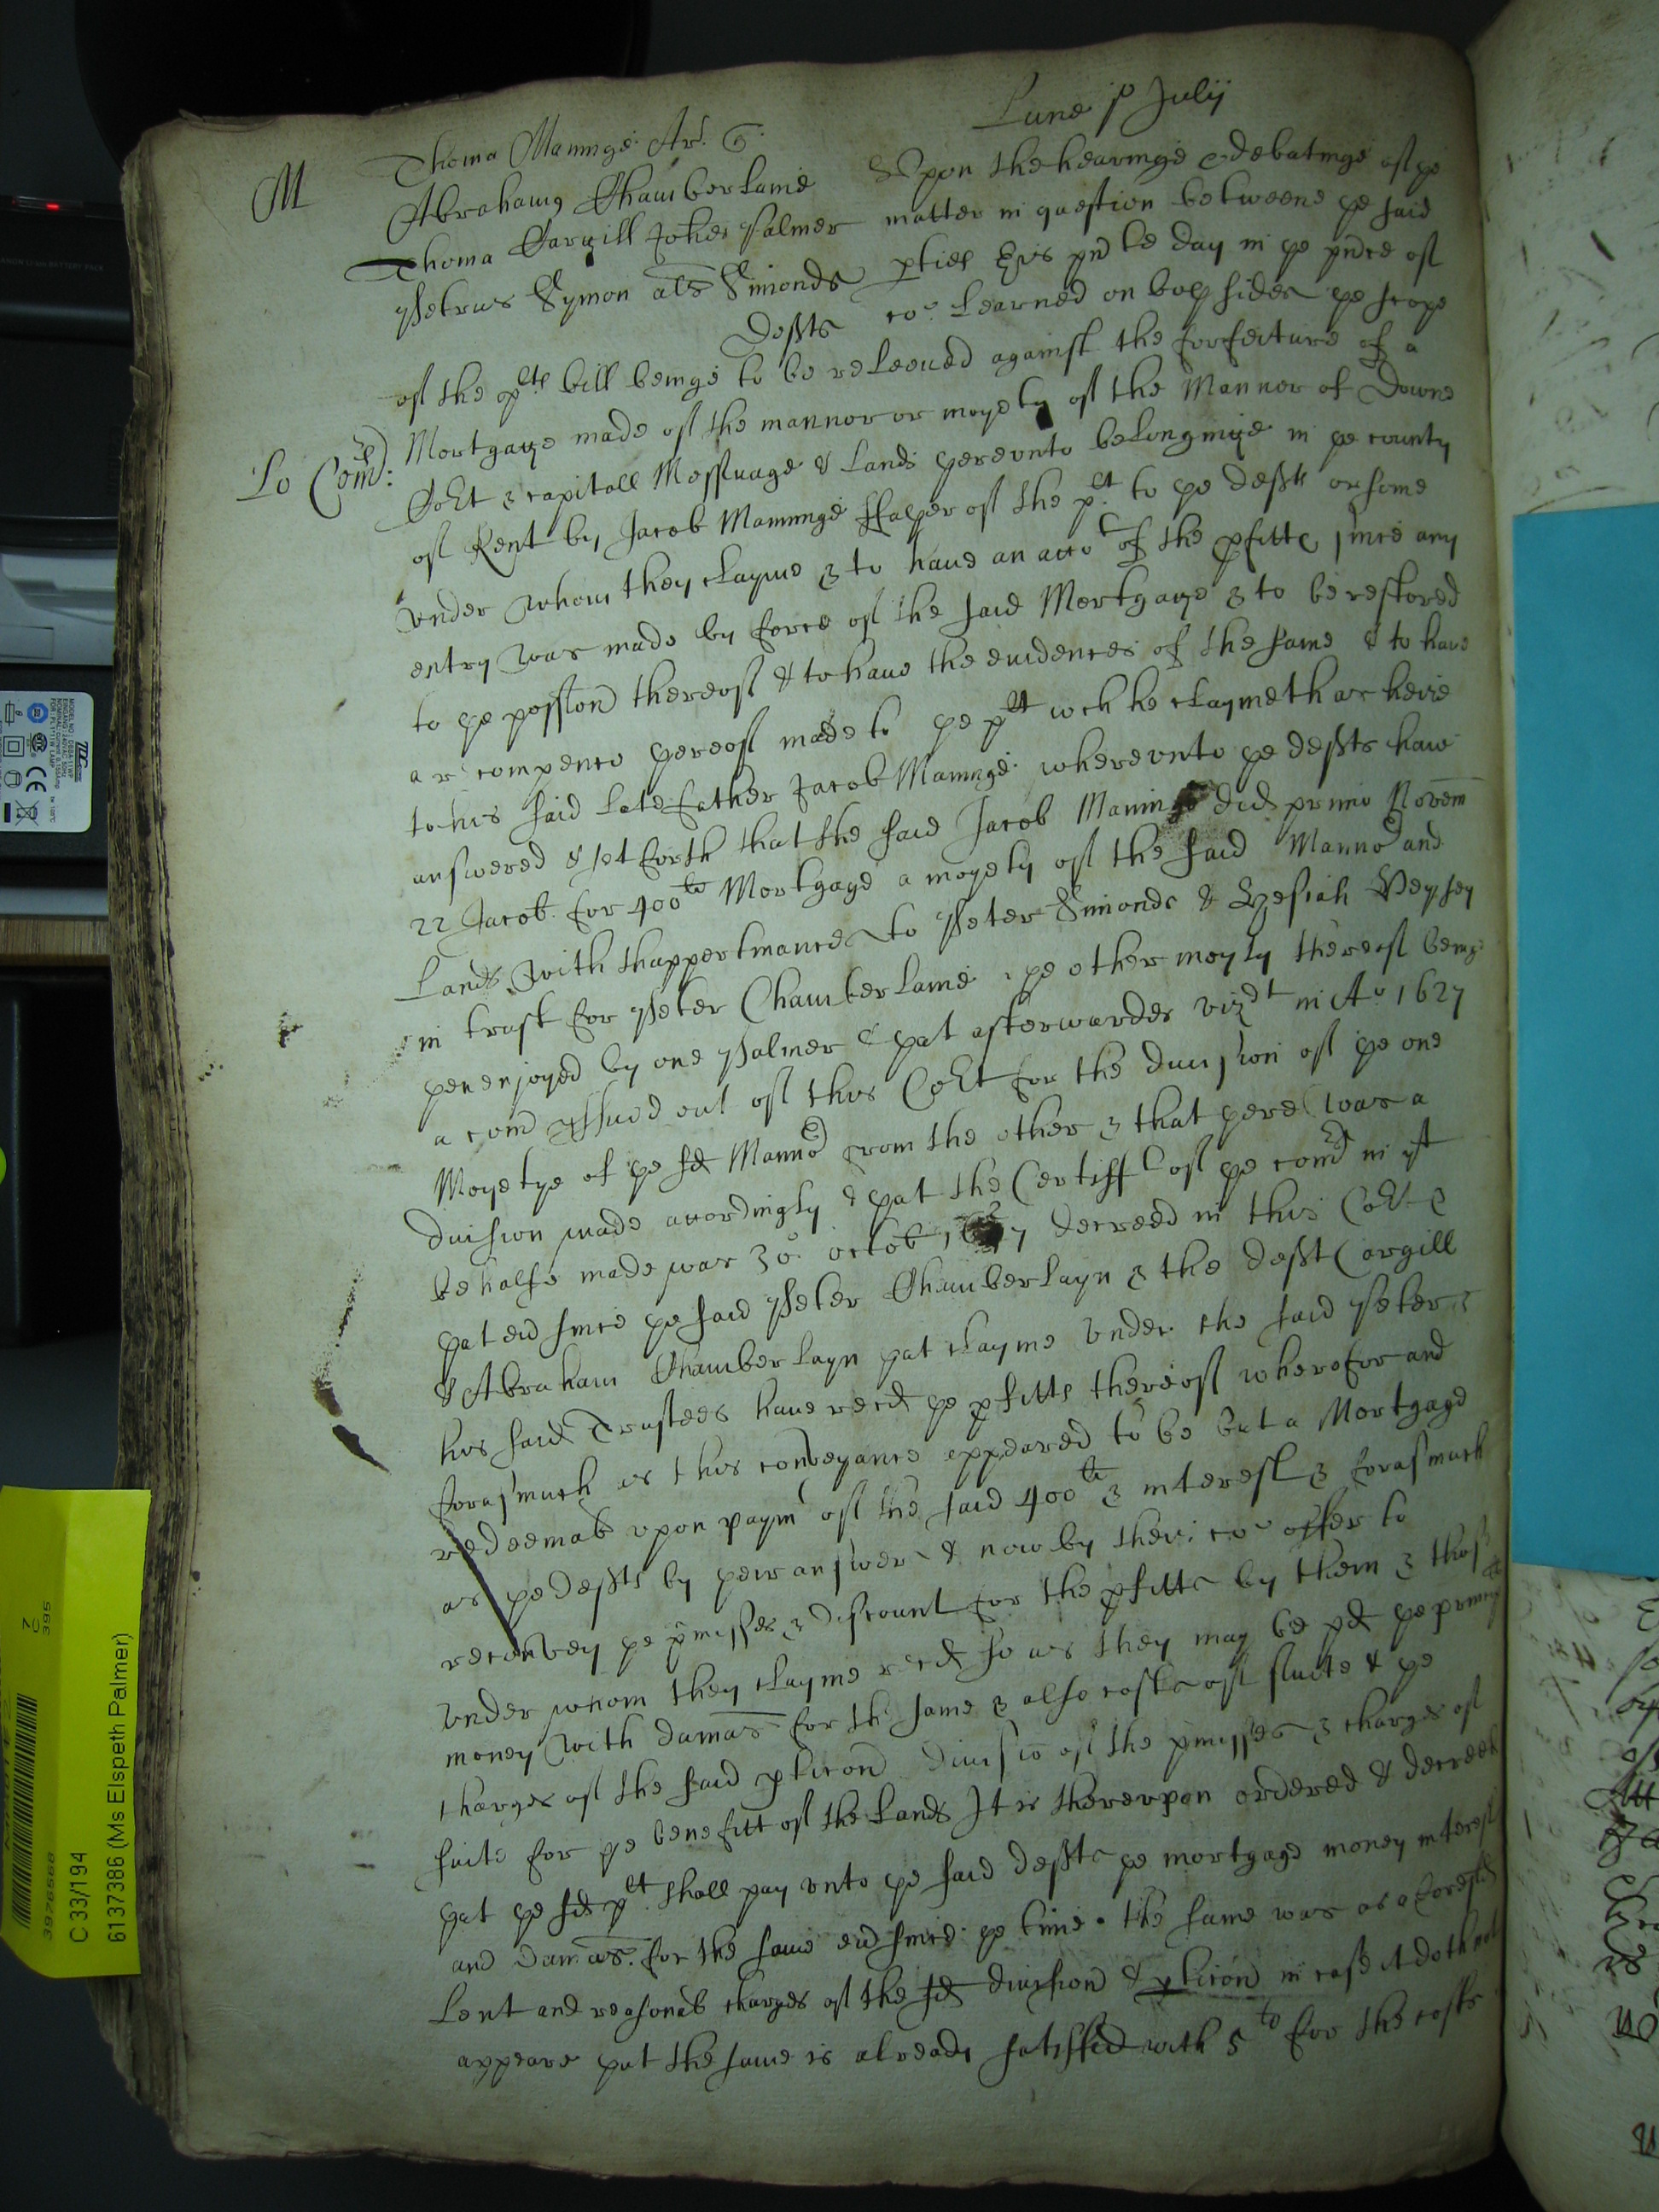 Lune p° Julij
M
Thoma Maninge Ar. 
Abrahamus Chamberlaine
Thoma Cargill Johes Palmer
Petrus Symon als Simonds
Defts
Upon the hearinge & debatinge of ye
matter in question betweene ye said
pties this pnte day in ye pnce of
co: learned on boy sides ye scope
of the plts bill beinge to be releeved against the forfeiture of a
Lo Com:
Mortgage made of the mannor or moyety of the Mannor of Downe
Cort & capitall Messuage & lands yereunto belonginge in ye county
of Kent by Jacob Maninge ffayer of the plt to ye defts or some
under whom they clayme & to have an acco of the pfitts since any
entry was made by force of the said Mortgage & to be restored
to ye possion thereof & to have the evidences of the same & to have
a recompence yereof made to ye plt wch he claymeth as heire
to his said late father Jacob Maninge whereunto ye defts have
answered & set forth that the said Jacob Maninge did primo Novem
22 Jacob. for 400li Mortgage a moyety of the said Mannor and
Lands with thappertinances to Peter Simonds & Hesiah Veysey
in trust for Peter Chamberlaine ye other moyty thereof beinge
yen enjoyed by one Palmer & yat afterwardes vizt in Ao 1627
a com issued out of this Cort for the division of ye one
Moyetye of ye sd Mannor from the other & that yere was a
division made accordingly & yat the Certiff of ye comrs in yt
behalfe made was 30 octob 1627 decreed in this Cort &
yat ever since ye said Peter Chamberlayn & the deft Cargill
& Abraham Chamberlayn yat clayme under the said Peter &
his said Trustees have recd ye pfitts thereof wherefor and
forasmuch as this conveyance appeared to be but a Mortgage
redeemab upon paymt of the said 400li & interest & forasmuch
as ye defts by yeir answer & now by their co offer to
reconvey ye pmisses & discount for the pfitts by them & those
under whom they clayme recd so as they may be pd ye princi
money with damas for the same & also costs of suite & ye
charges of the said pticon division of the pmisses & charges of
suite for ye benefitt of the Lands It is thereupon ordered & decreed
yat ye sd plt shall pay unto ye said defts ye mortgage money interest
and damas for the same ever since ye time the same was as aforesd
lent and reasonab charges of the sd division & pticon in case it doth not
appeare yat the same is already satisfied with 5li for the costs
C 33/194
6137386 (Ms Elspeth Palmer)
39765568